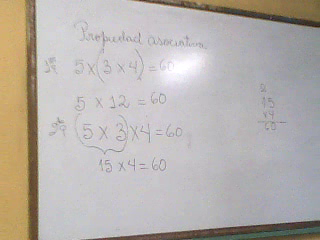 Propiedad asociativa
1º 5×(3×4)=60
5 × 12 = 60
2º (5 × 3)×4=60
15 ×4=60
2
15
×4
60